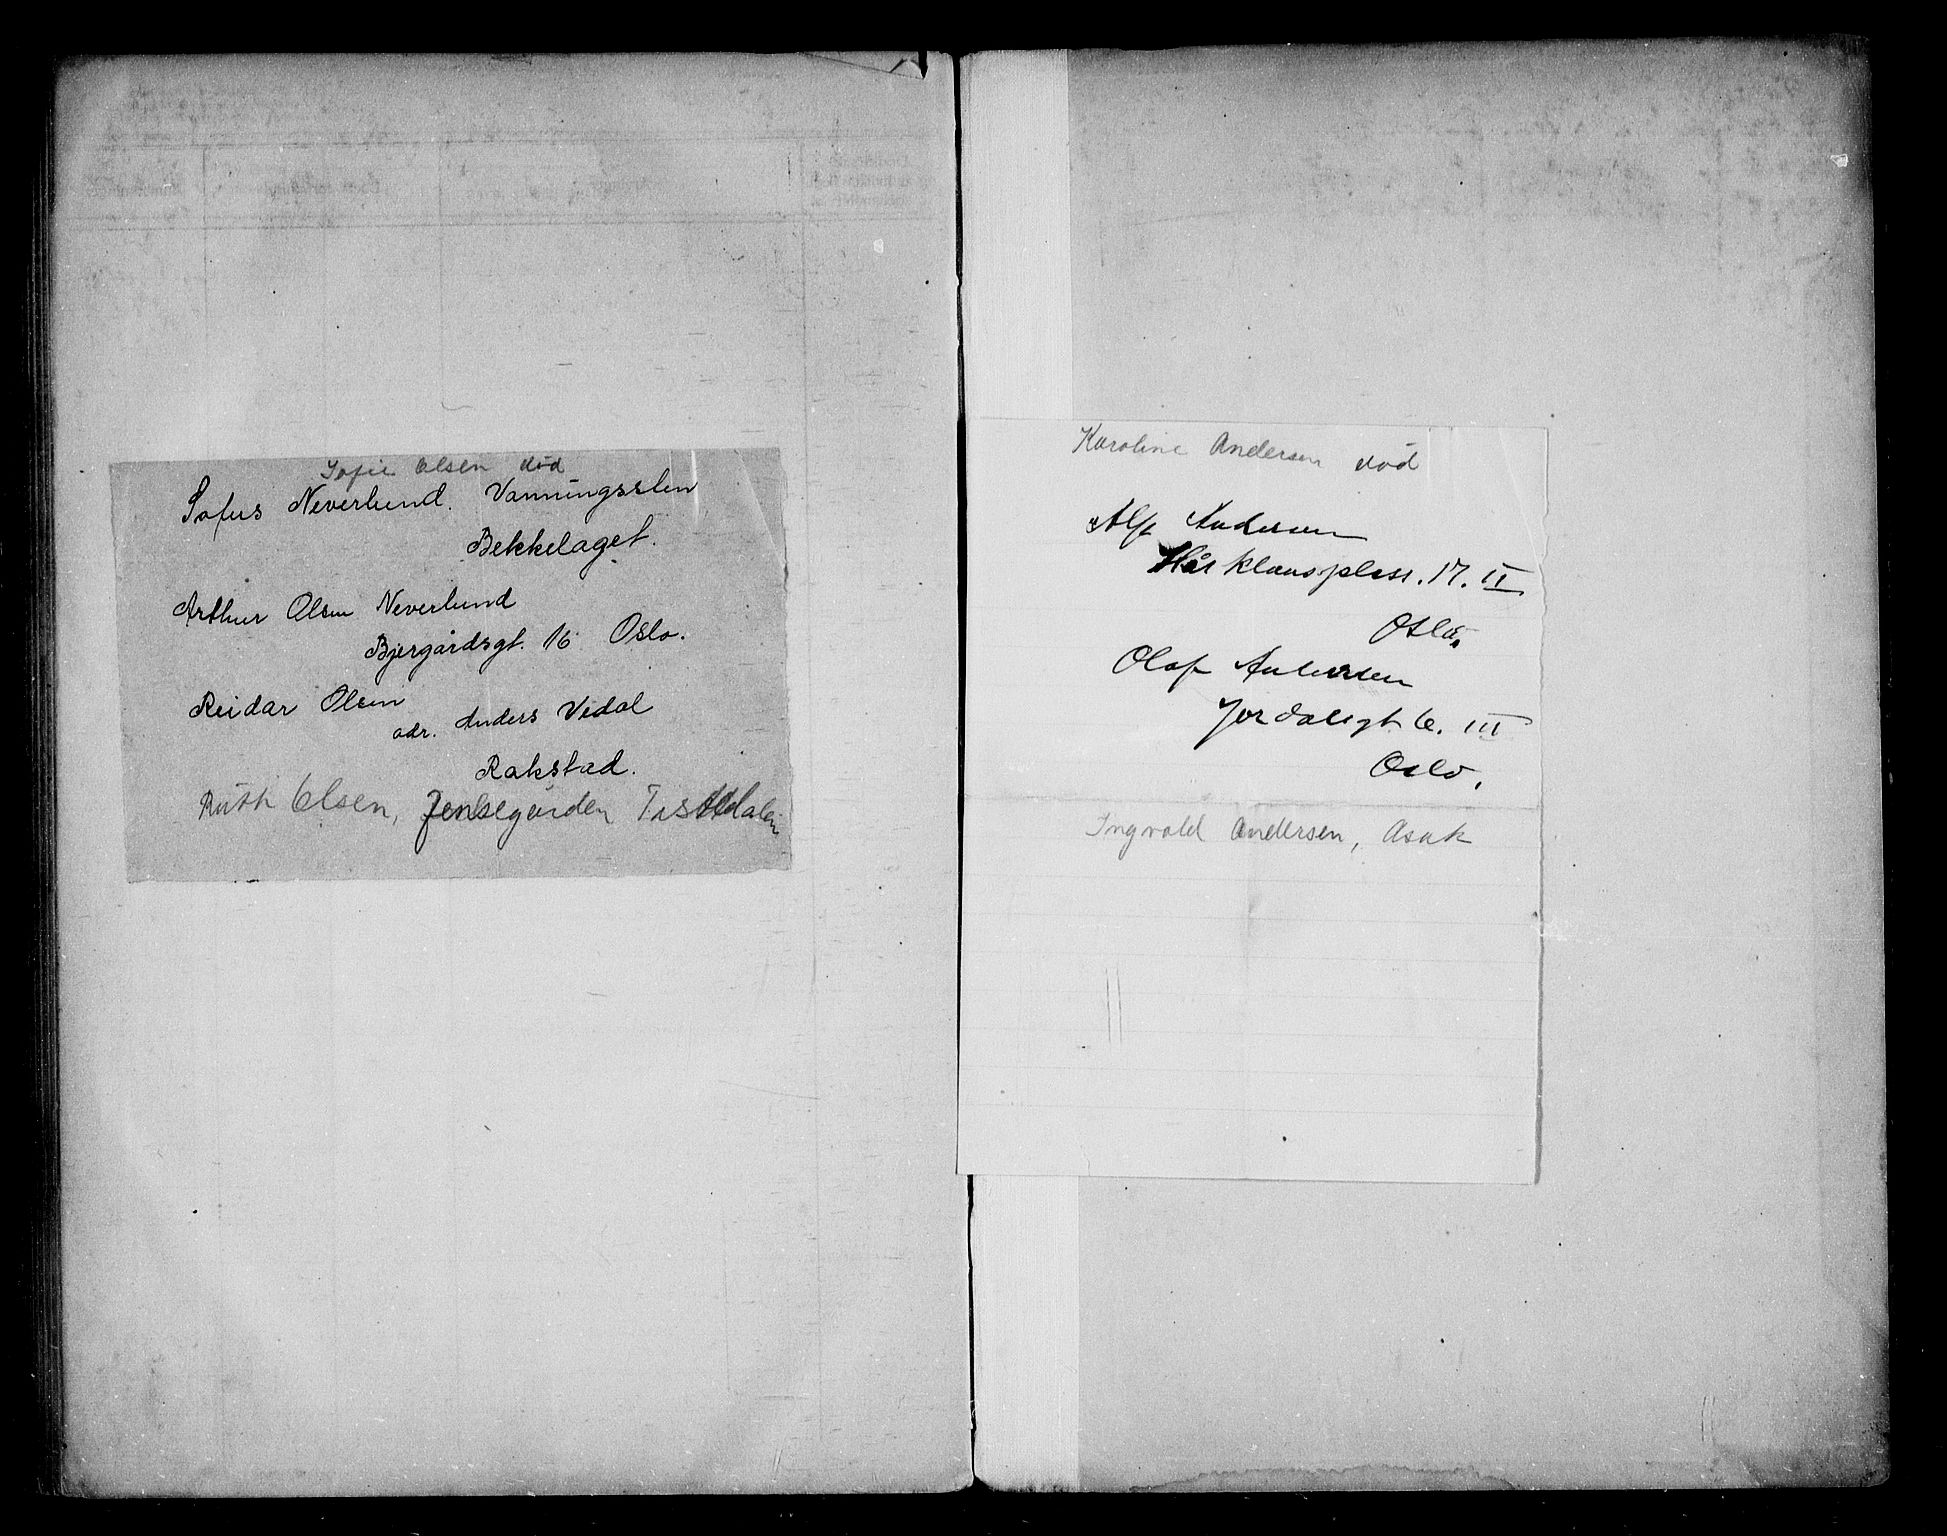 Sofie Olsen död
Sofus Neverlund. Vanningsslen
Bekkelaget.
Arthur Olsen Neverlund
Bjergårdsgt. 16 Oslo.
Reidar Olsen
adr. Anders Vedal
Rakstad.
Ruth Olsen, Jensegården Tistedalen
Karoline Andersen död
Alf Andersen
klausplass. 17. II
Oslo.
Olaf Andersen
Jordalsgt 6. III
Oslo.
Ingvald Andersen, Asak